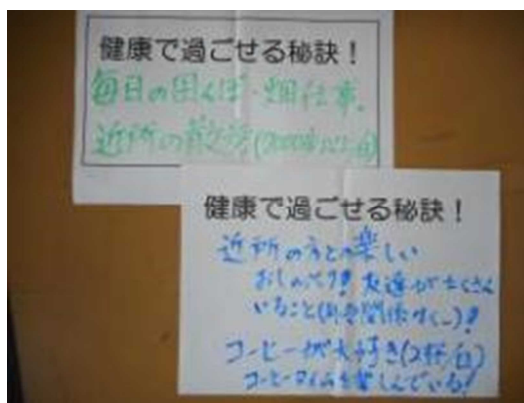 健康で過ごせる秘訣！
毎日の田んぼ・畑仕事。
近所の散歩(2000歩以上/日)
健康で過ごせる秘訣！
近所の方との楽しい
おしゃべり！友達がたくさん
いること(年令関係なく～)！
コーヒーが大好き(2杯/日)
コーヒータイムを楽しんでいる！